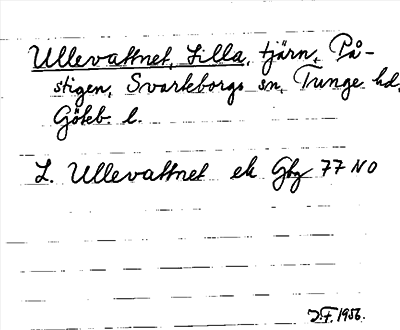 Ullevattnet, Lilla, tjärn, På-
stigen, Svarteborgs sn, Tunge hd,
Göteb. l.
L. Ullevattnet ek Gbg 77 NO
J.F. 1956.